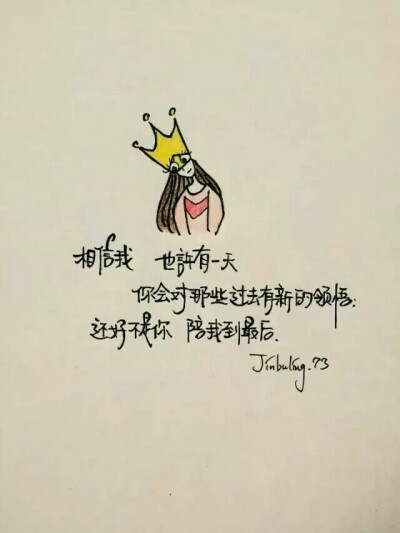 相信我 也許有一天
你会对那些过去有新的领悟:
还好不是你 陪我到最后.
Jinbuling.73